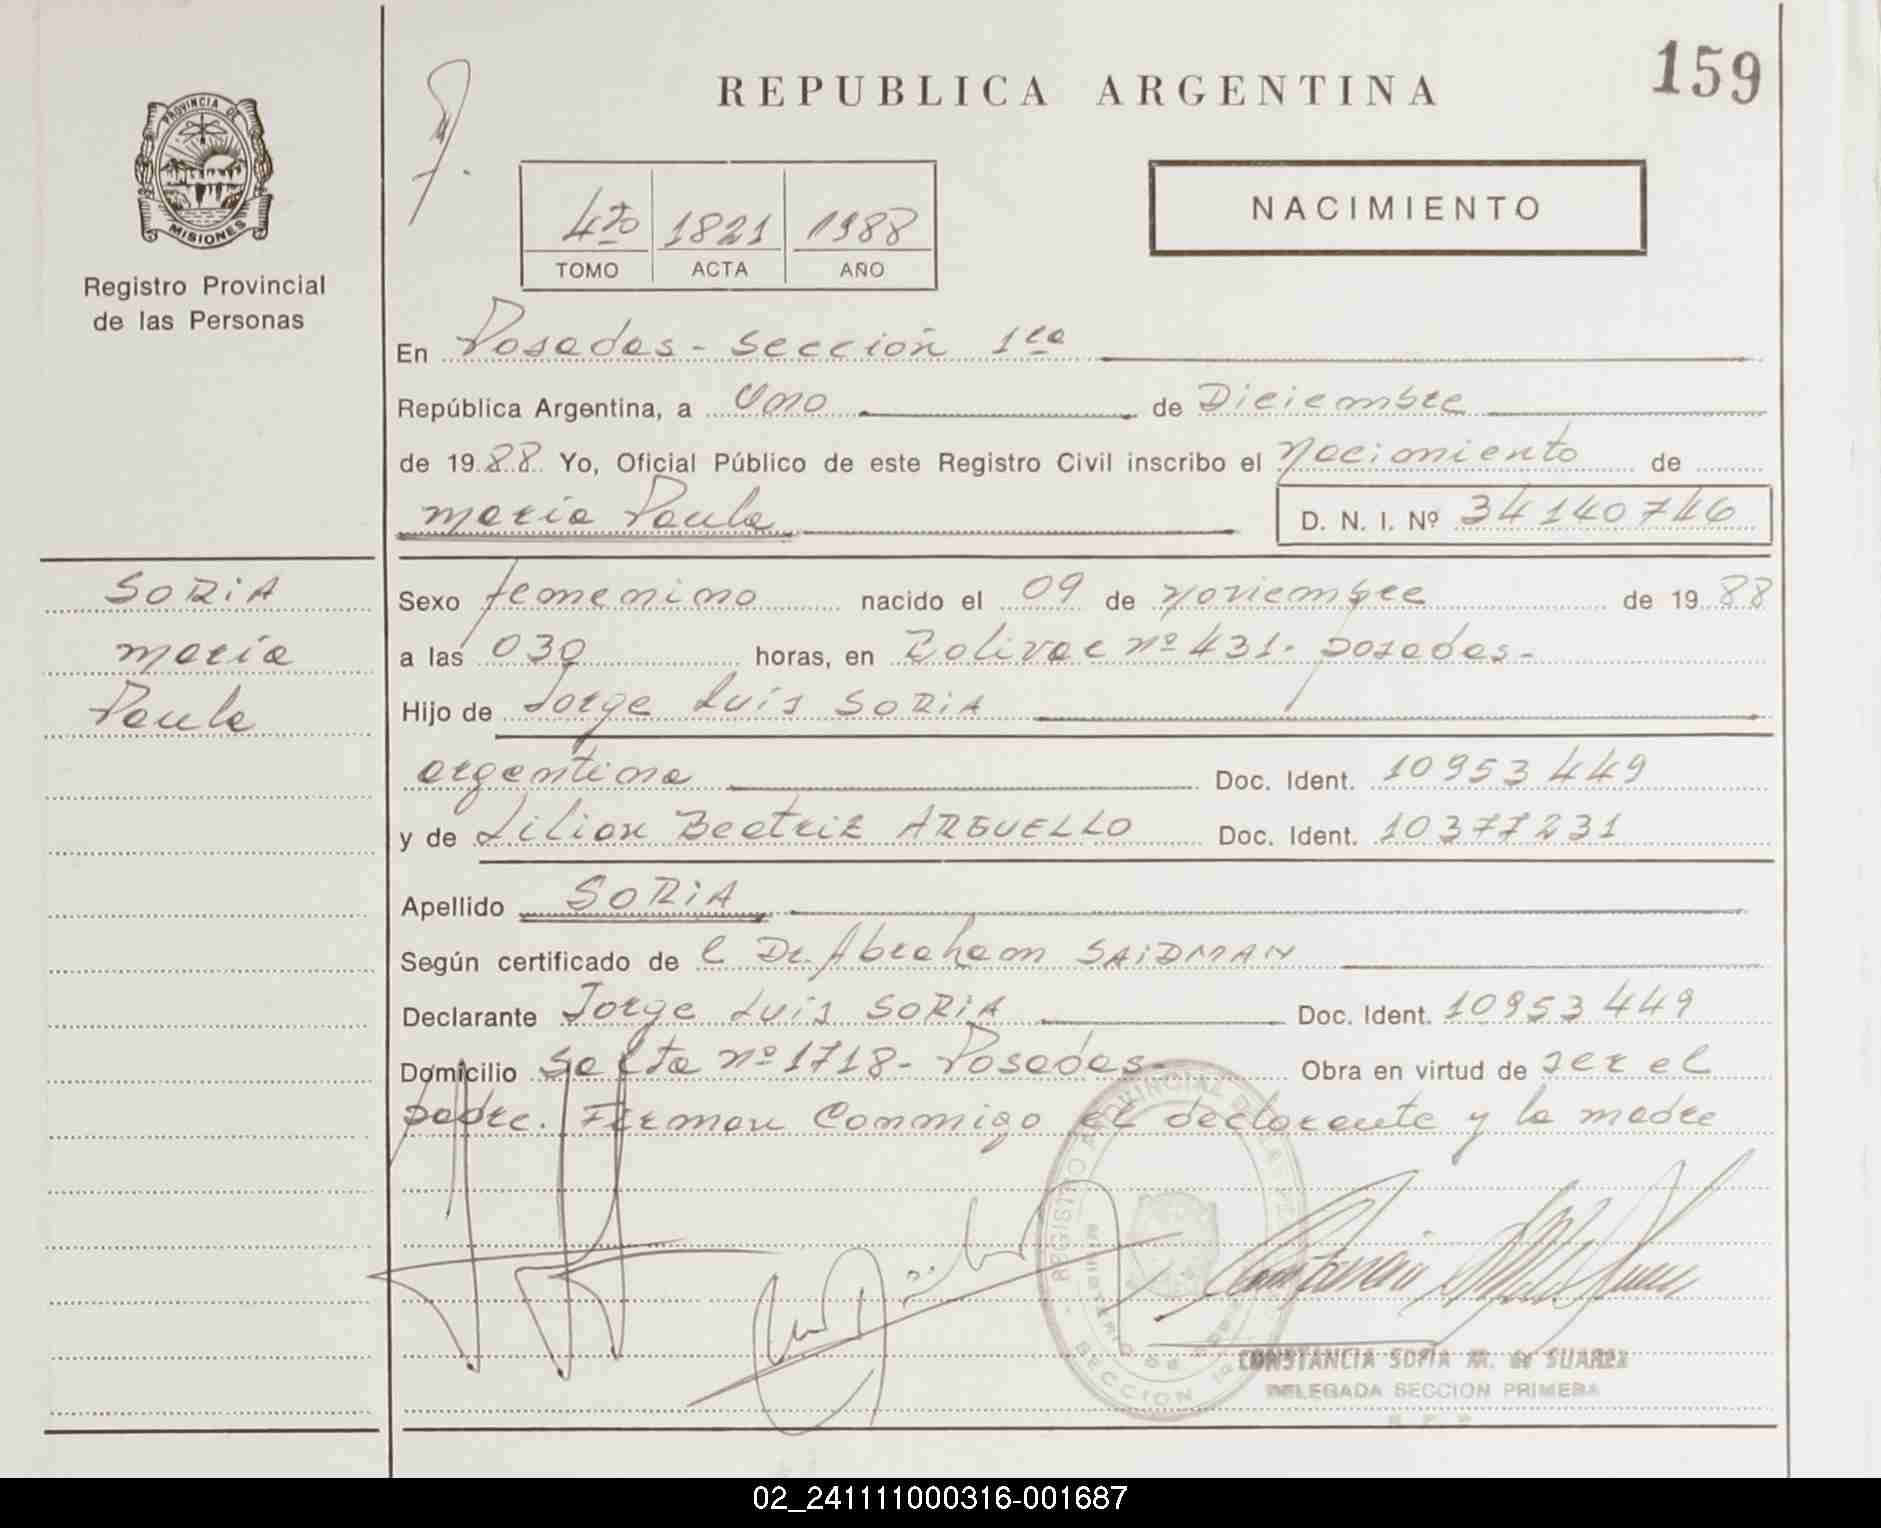 REPUBLICA ARGENTINA
159
PROVINCIA DE
MISIONES
Registro Provincial
de las Personas
4to 1821 1988
TOMO ACTA AÑO
NACIMIENTO
En Posadas - Sección 1ra
República Argentina, a Uno de Diciembre
de 1988 Yo, Oficial Público de este Registro Civil inscribo el Nacimiento de
María Paula D. N. I. Nº 34140746
SORIA
María
Paula
Sexo femenino nacido el 09 de noviembre de 1988
a las 030 horas, en Bolivar nº 431. posadas-
Hijo de Jorge Luís SORIA
argentina Doc. Ident. 10953449
y de Lilian Beatriz ARGUELLO Doc. Ident. 10377231
Apellido SORIA
Según certificado de l Dr. Abraham SAIDMAN
Declarante Jorge Luis SORIA Doc. Ident. 10953449
Domicilio Salta nº 1718- Posadas- Obra en virtud de ser el
padre. Firman Conmigo el declarante y la madre
CONSTANCIA SOFIA M. de SUAREZ
DELEGADA SECCION PRIMERA
R. P. P.
02_241111000316-001687